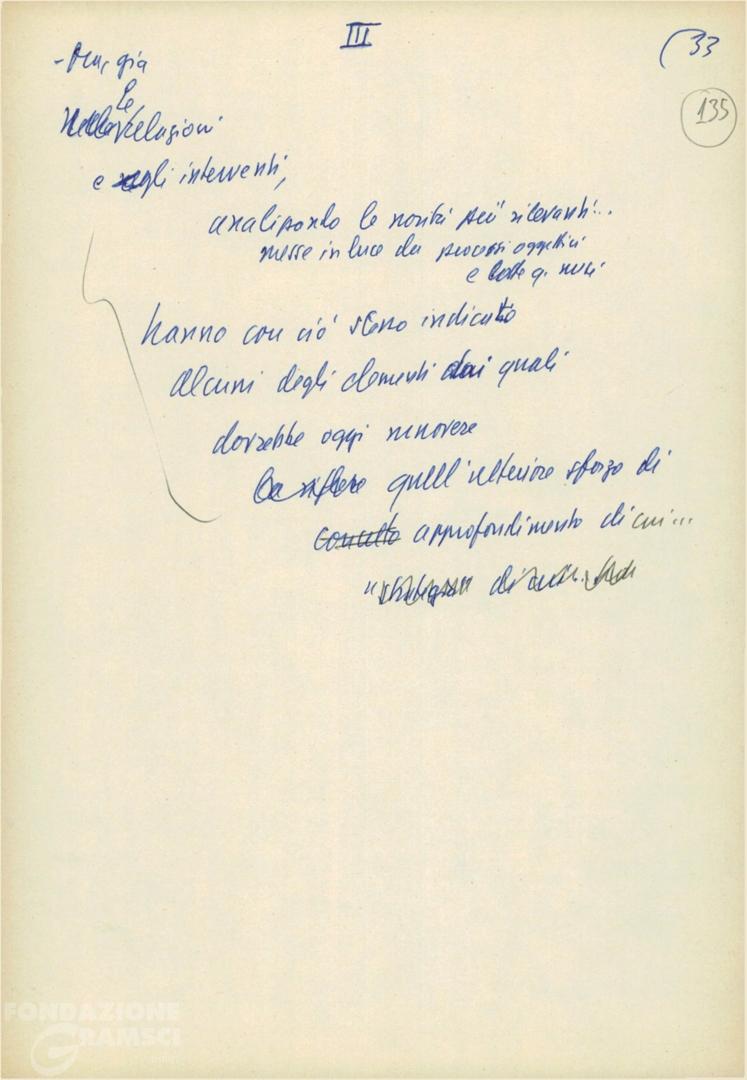 III
33
135
- Ma, già
le
Nelle relazioni
e negli interventi,
analizzando le novità più rilevanti...
messe in luce da processi oggettivi
e lotte q. mesi
hanno con ciò stesso indicato
alcuni degli elementi dai quali
dovrebbe oggi muovere
quell'ulteriore sforzo di
concreto approfondimento di cui...
di
FONDAZIONE
GRAMSCI